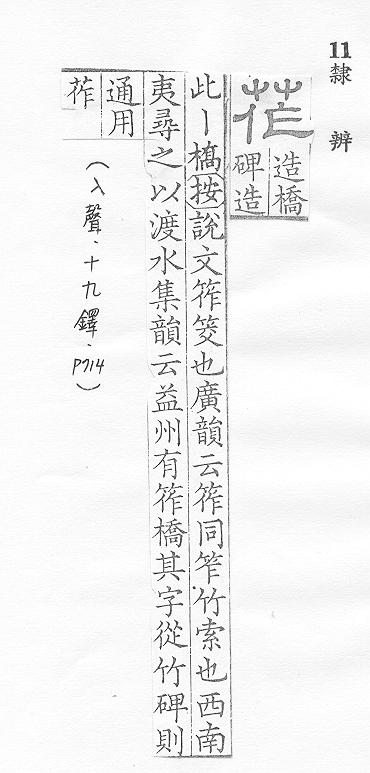 11 隸辨
莋
造橋
碑造
此丨槗按說文筰筊也廣韻云筰同笮竹索也西南
夷尋之以渡水集韻云益州有筰橋其字從竹碑則
通用
莋
(入聲.十九鐸.P714)